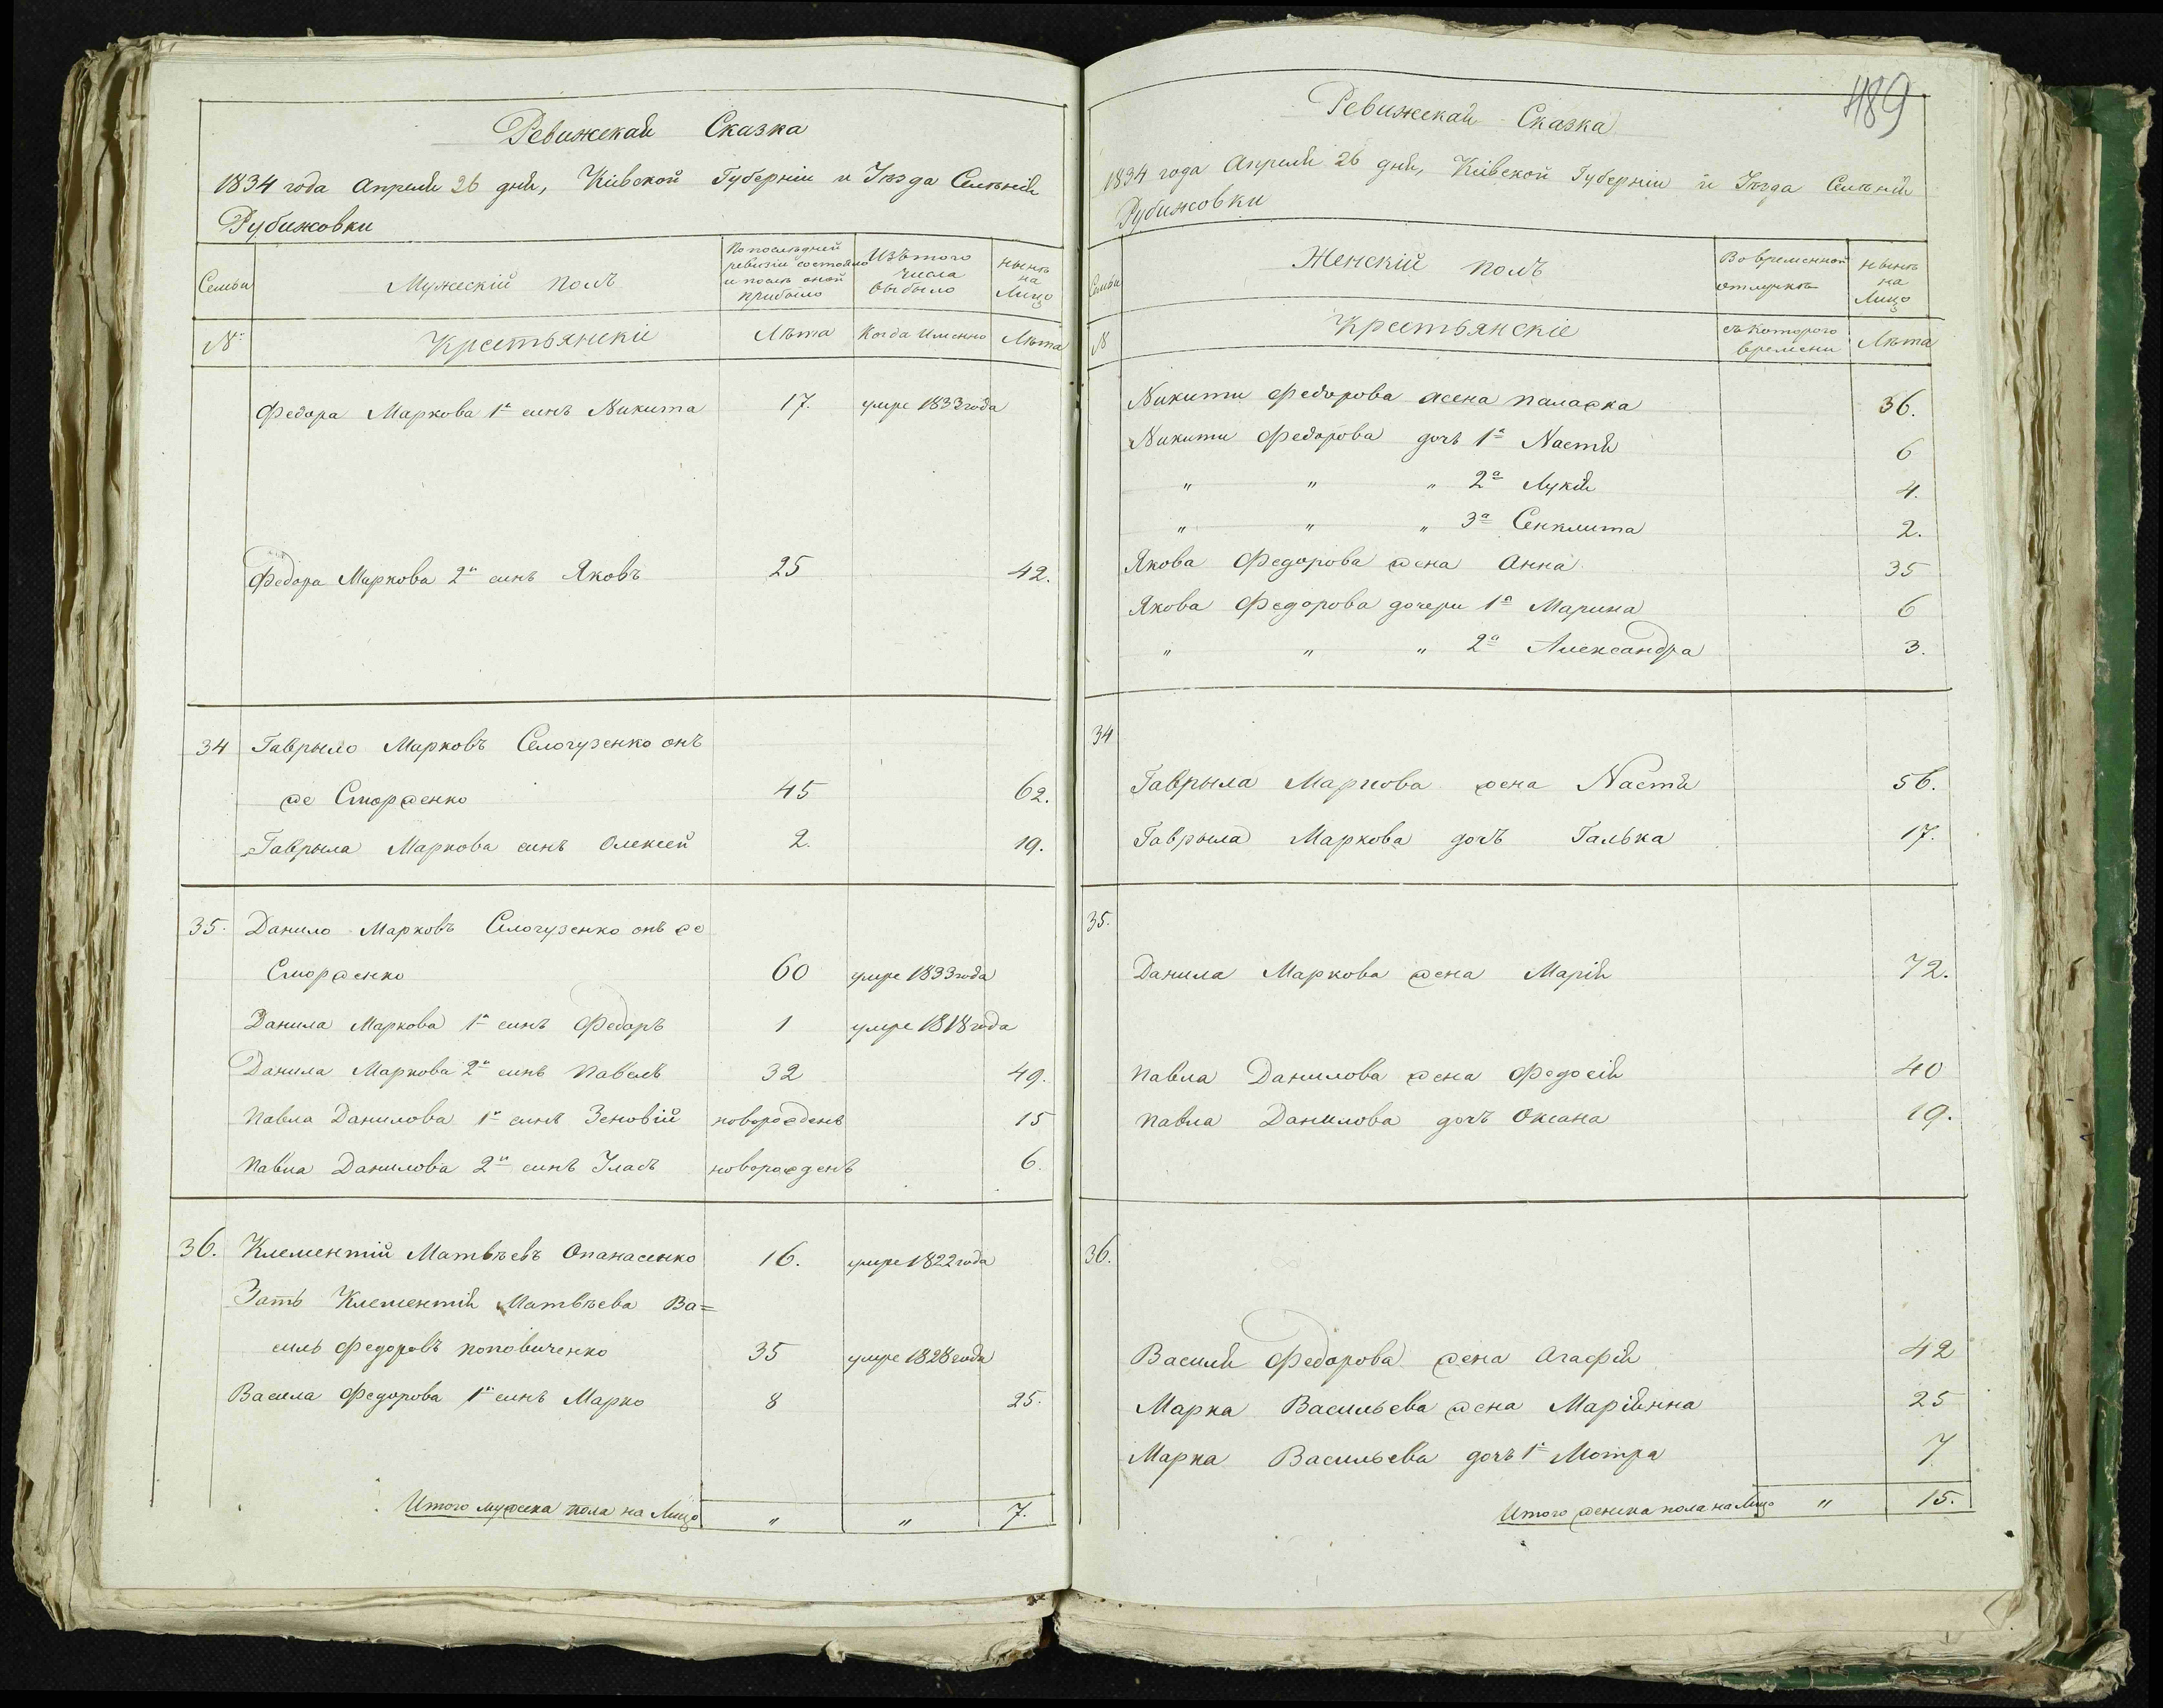 Ревижскай Сказка
1834 года Апреля 26 дня, Кіевской Губерніи и Уѣзда Селѣнія
Рубижовки
Семьи
Мужескій полъ
По последней ревизіи состояло и послѣ оной прибыло
Изъ того числа выбыло
Нынѣ на Лицо
№
Крестьянскіе
Лѣта
Когда Именно
Лѣта
Федора Маркова 1й синъ Никита 17. умре 1833 года
Федора Маркова 2й синъ Яковъ 25 42.
34 Гаврыло Марковъ Селогузенко онъ
же Сторженко 45 62.
Гаврыла Маркова синъ Олексей 2. 19.
35. Данило Марковъ Селогузенко онъ же
Сторженко 60 умре 1833 года
Данила Маркова 1й синъ Федоръ 1 умре 1818 года
Данила Маркова 2й синъ Павелъ 32 49.
Павла Данилова 1й синъ Зеновій новорожденъ 15
Павла Данилова 2й синъ Уласъ новорожденъ 6.
36. Клементій Матвѣевъ Опанасенко 16. умре 1822 года
Зать Клементія Матвѣева Ва=
силь Федоровъ поповиченко 35 умре 1828 года
Васила Федорова 1й синъ Марко 8 25.
Итого мужска пола на Лицо " " 7.
489
Ревижскай Сказка
1834 года Апреля 26 дня, Кіевской Губерніи и Уѣзда Селѣнія
Рубижовки
Семьи
Женскій полъ
Во временной отлучкѣ
Нынѣ на Лицо
№
Крестьянскіе
съ которого времени
Лѣта
Никити Федорова жена Палажка 36.
Никити Федорова дочь 1а Настя 6
" " " 2а Лукія 4.
" " " 3а Сенклита 2.
Якова Федорова жена Анна 35
Якова Федорова дочери 1а Марина 6
" " " 2а Александра 3.
34
Гаврыла Маркова жена Настя 56.
Гаврыла Маркова дочъ Галька 17.
35.
Данила Маркова жена Марія 72.
Павла Данилова жена Федосія 40
Павла Данилова дочъ Оксана 19.
36.
Василя Федорова жена Агафія 42
Марка Васильева жена Маріянна 25
Марка Васильева дочъ 1а Мотра 7
Итого женска пола на Лицо " 15.